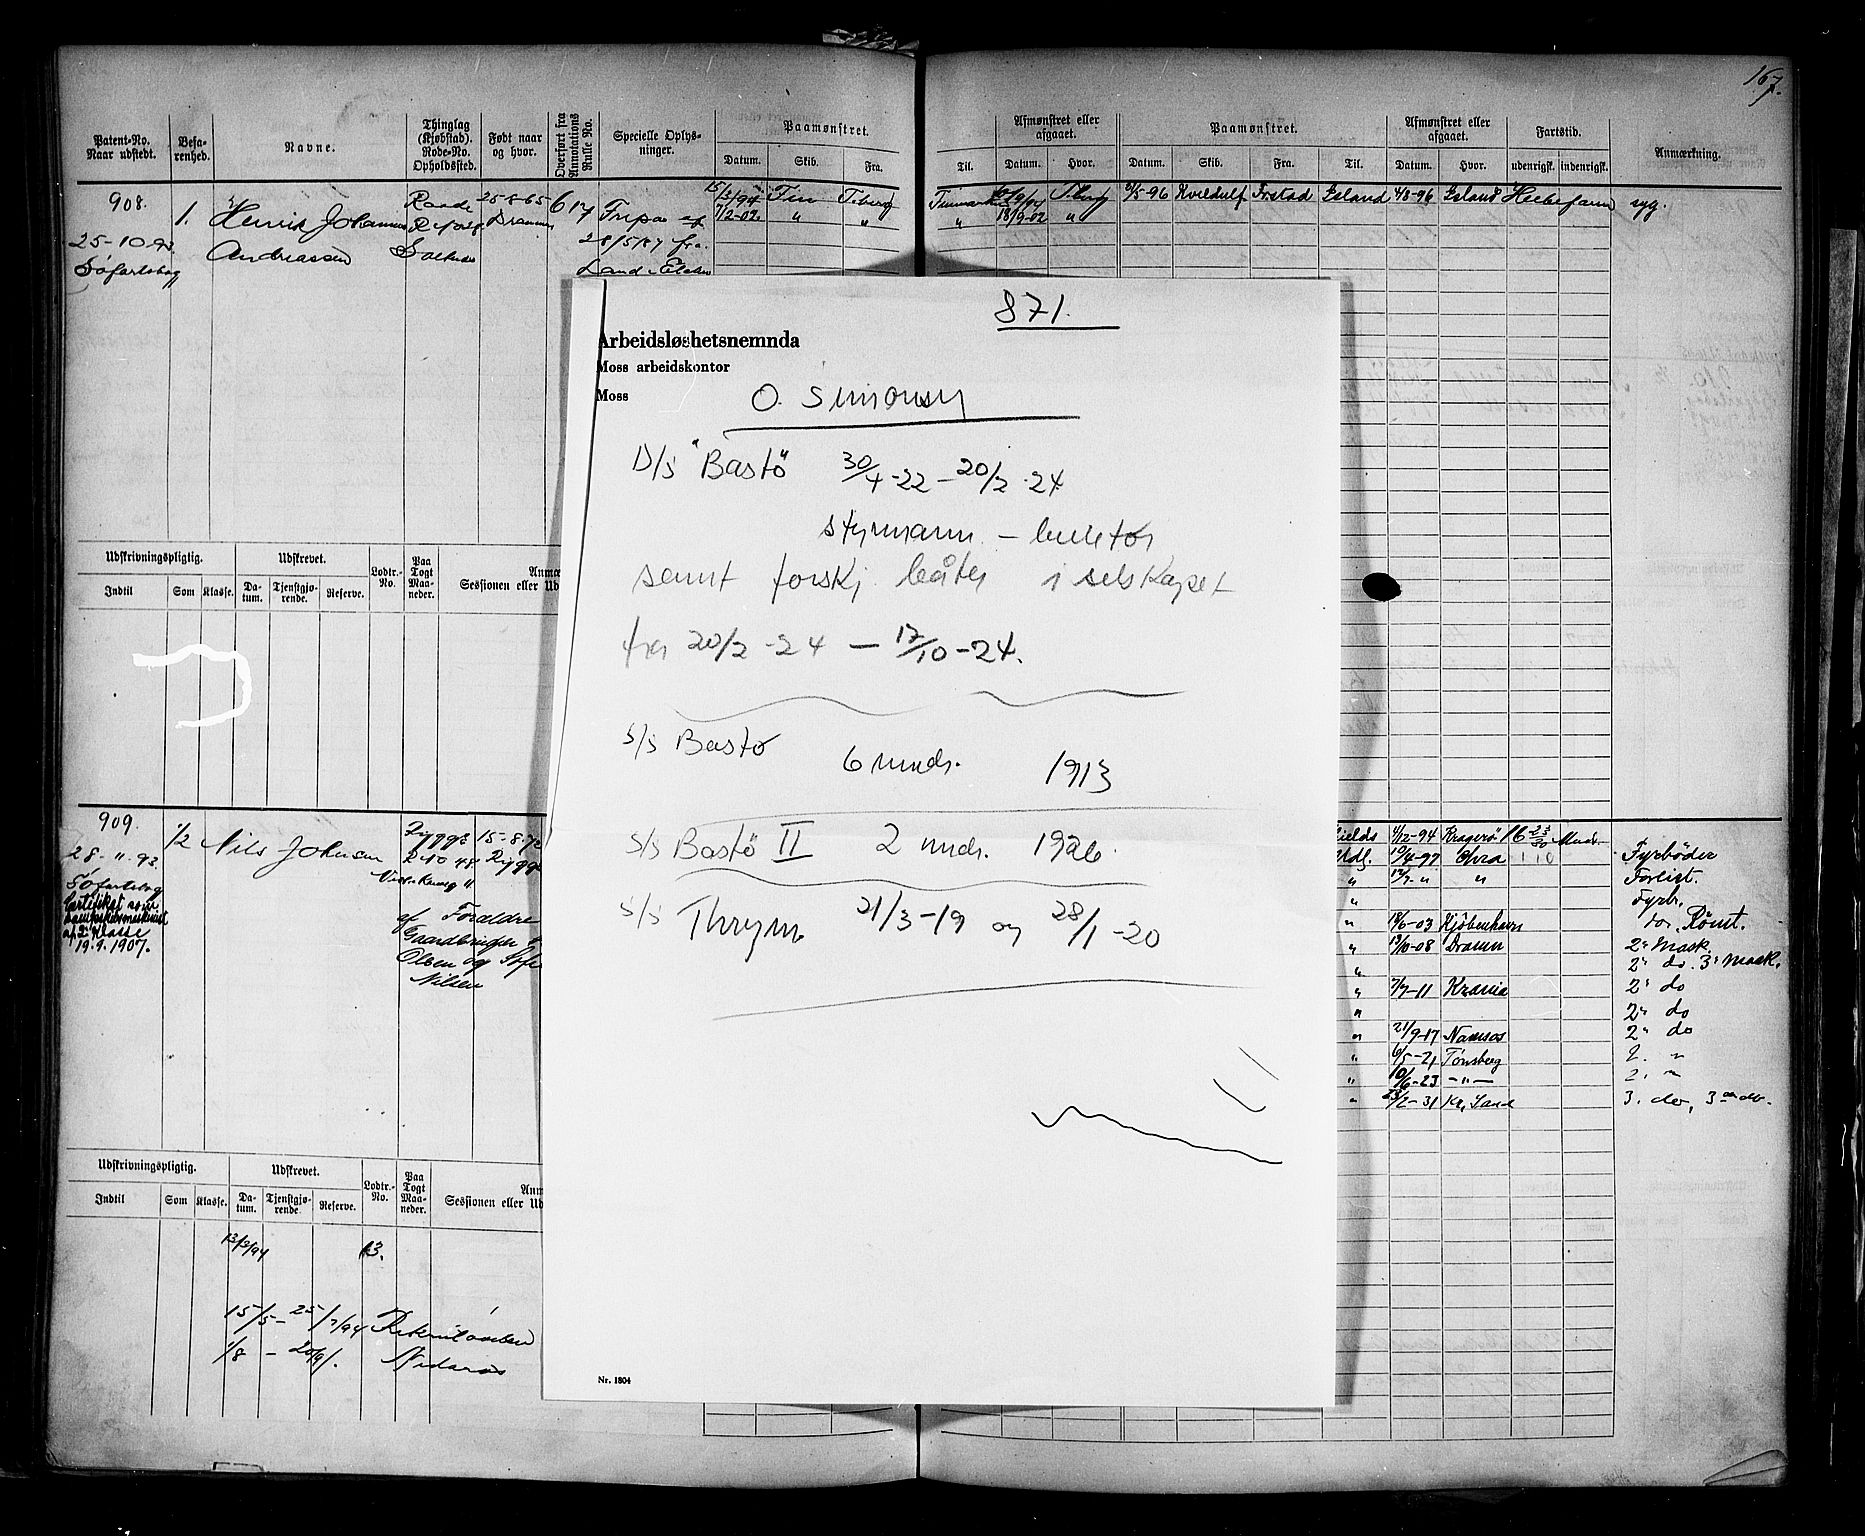 167.
Patent-No. Naar udstedt.
Befarenhed.
Navne.
Thinglag (Kjøbstad). Rode-No. Opholdssted.
Født naar og hvor.
Overført fra Annotations Rulle No.
Specielle Oplysninger.
Paamønstret.
Datum. Skib. Fra.
Til.
Afmønstret eller afgaaet.
Datum. Hvor.
Paamønstret.
Datum. Skib. Fra. Til.
Afmønstret eller afgaaet.
Datum. Hvor.
Fartstid.
udenrigsk. indenrigsk.
Anmærkning.
908.
25-10-93
Søfartsbog
1.
Henrik Johannes
Andreassen
Raade
25-8-65
Drammen
617
28/5 87 fra
15/3/94
7/2-02
"
"
18/9-02
"
2/5-96 Kveldulf Fr.stad Island 4/8-96 Island syg.
Udskrivningspligtig.
Indtil Som Klasse.
Udskrevet.
Datum. Tjenstgjørende. Reserve.
Lodtr.-No.
Paa Togt Maaneder.
Sessionen eller Ud
871.
Arbeidsløshetsnemnda
Moss arbeidskontor
Moss
O. Simonsen
D/s "Bastö" 30/4-22 – 20/2-24
styrmann – billetör
samt forskj. båter i selskapet
fra 20/2-24 – 17/10-24.
s/s Bastö 6 mndr. 1913
s/s Bastö II 2 mndr. 1926
s/s Thrym 21/3-19 og 28/1-20
Nr. 1804
909.
28-11-93
Søfartsbog
Certifikat som
af 2. Klasse
19.9.1907.
1/2 Nils Johnsen
Rygge
15-8-72
Rygge
af Forældre
Gaardbruger
Olsen og Sofie
Nilsen
ields 4/12-94 Kragerø 16 23/30 Mnd. Fyrbøder
10/4-97 Forlist.
" " Fyrb.
" 18/6-03 Kjøbenhavn do. Rømt.
" 13/10-08 Dramn 2' Mask.
" 2' do. 3' Mask.
" 7/7-11 Krania 2' do
" 2' do
" 21/9-17 Namsos 2' do
" 6/5-21 Tønsberg 2. "
" 10/6-23 – " – 2. "
" Kr. Sand 3. do, 3die do.
Udskrivningspligtig.
Indtil Som Klasse.
Udskrevet.
Datum. Tjenstgjørende Reserve.
Lodtr.-No.
Paa Togt Maaneder.
Sessionen eller Ud
13/3/94 13.
15/5 – 25/7/94
1/8 – Nidaros